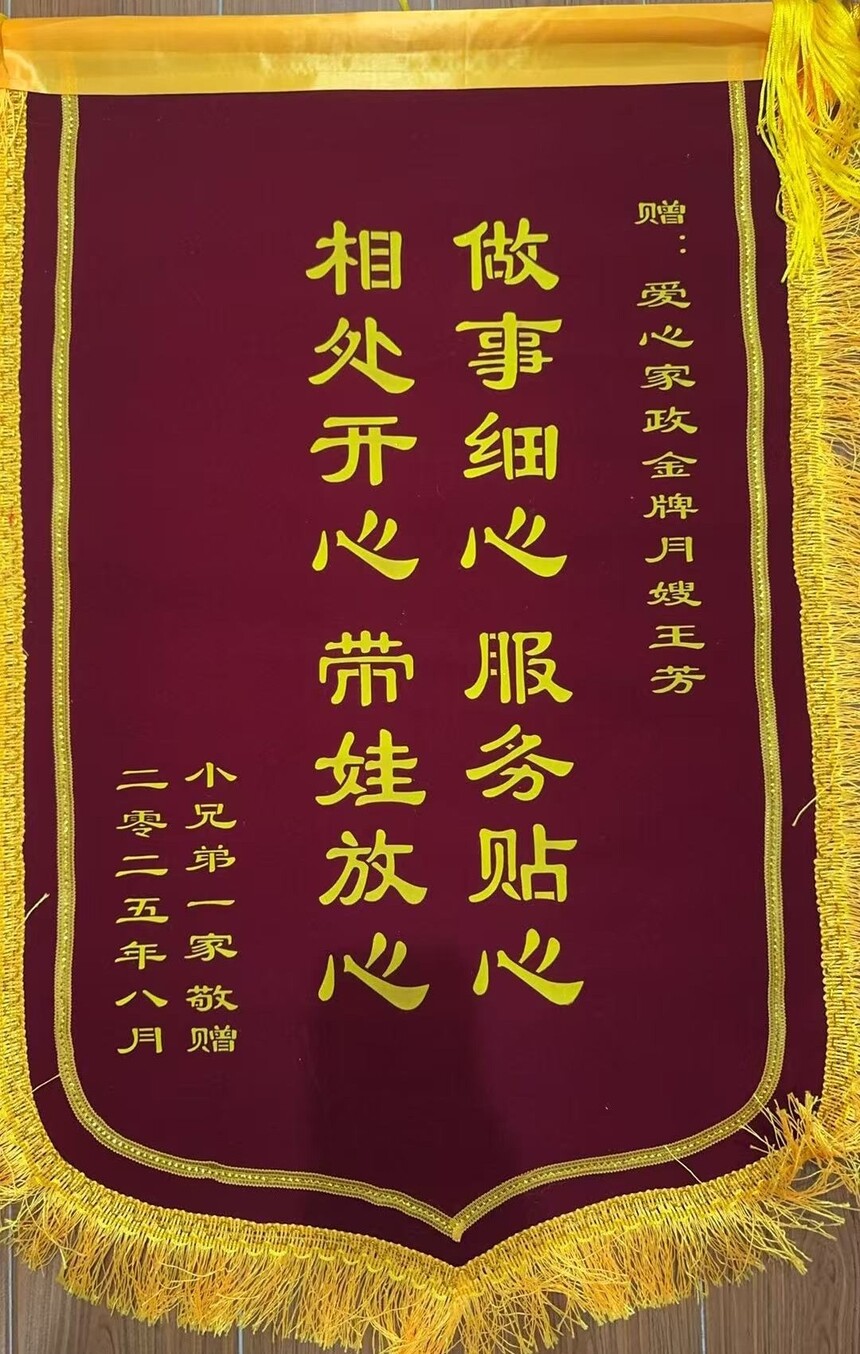 赠：爱心家政金牌月嫂王芳
做事细心 服务贴心
相处开心 带娃放心
小兄弟一家敬赠
二零二五年八月